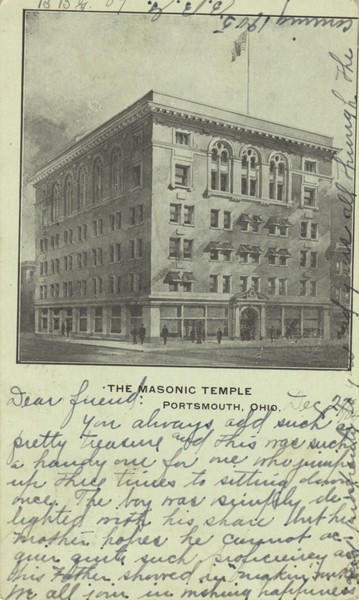 1905
THE MASONIC TEMPLE
PORTSMOUTH, OHIO.
Dear friend: Dec 29
You always add such a
pretty treasure and this was such
a handy one for one who jumps
up three times to sitting down
once. The boy was simply de-
lighted with his share but his
mother hopes he cannot ac
quire quite such proficiency as
his Father showed in making
We all join in wishing happiness
all through the
coming